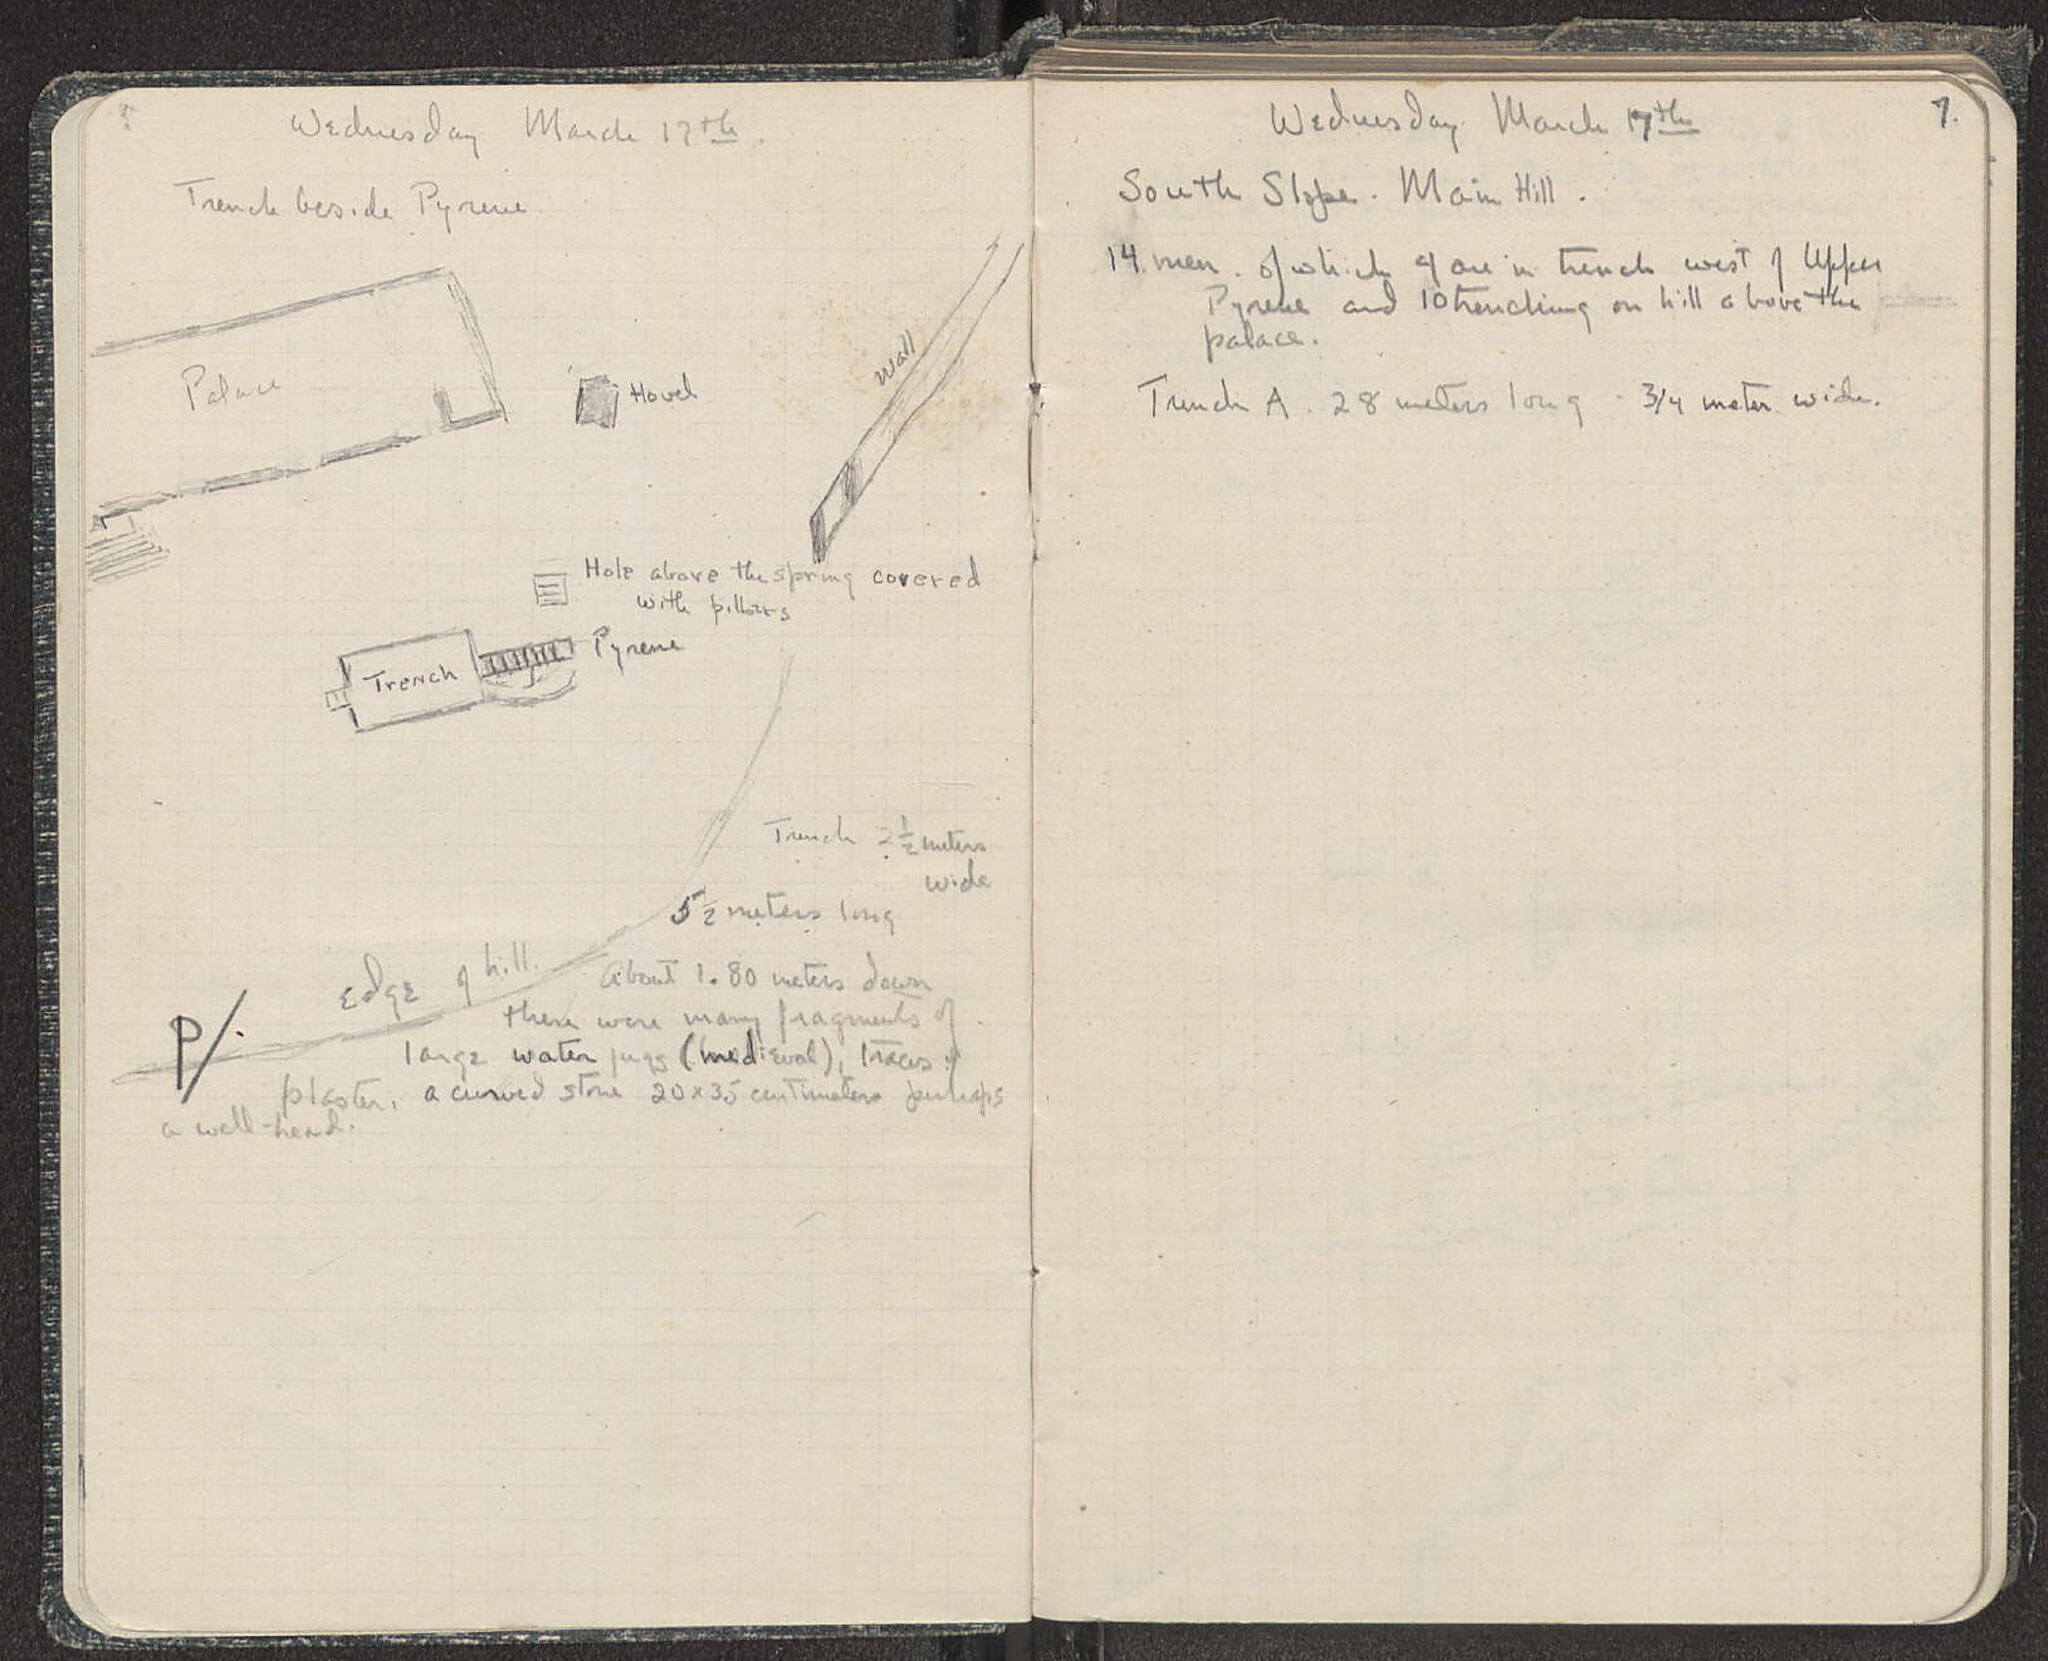 Wednesday March 17th.
Trench beside Pyrene
Palace
Hovel
Wall
Hole above the spring covered
with pillars
Pyrene
Trench
Trench 2 1/2 meters
wide
5 1/2 meters long
Edge of hill.
About 1.80 meters down
there were many fragments of
large water jugs (medieval), traces of
plaster, a curved stone 20 x 35 centimeters perhaps
a well-head.
P/.
Wednesday March 17th
7.
South Slope. Main Hill.
14 men. of which 4 are in trench west of Upper
Pyrene and 10 trenching on hill above the
palace.
Trench A. 28 meters long - 3/4 meter wide.